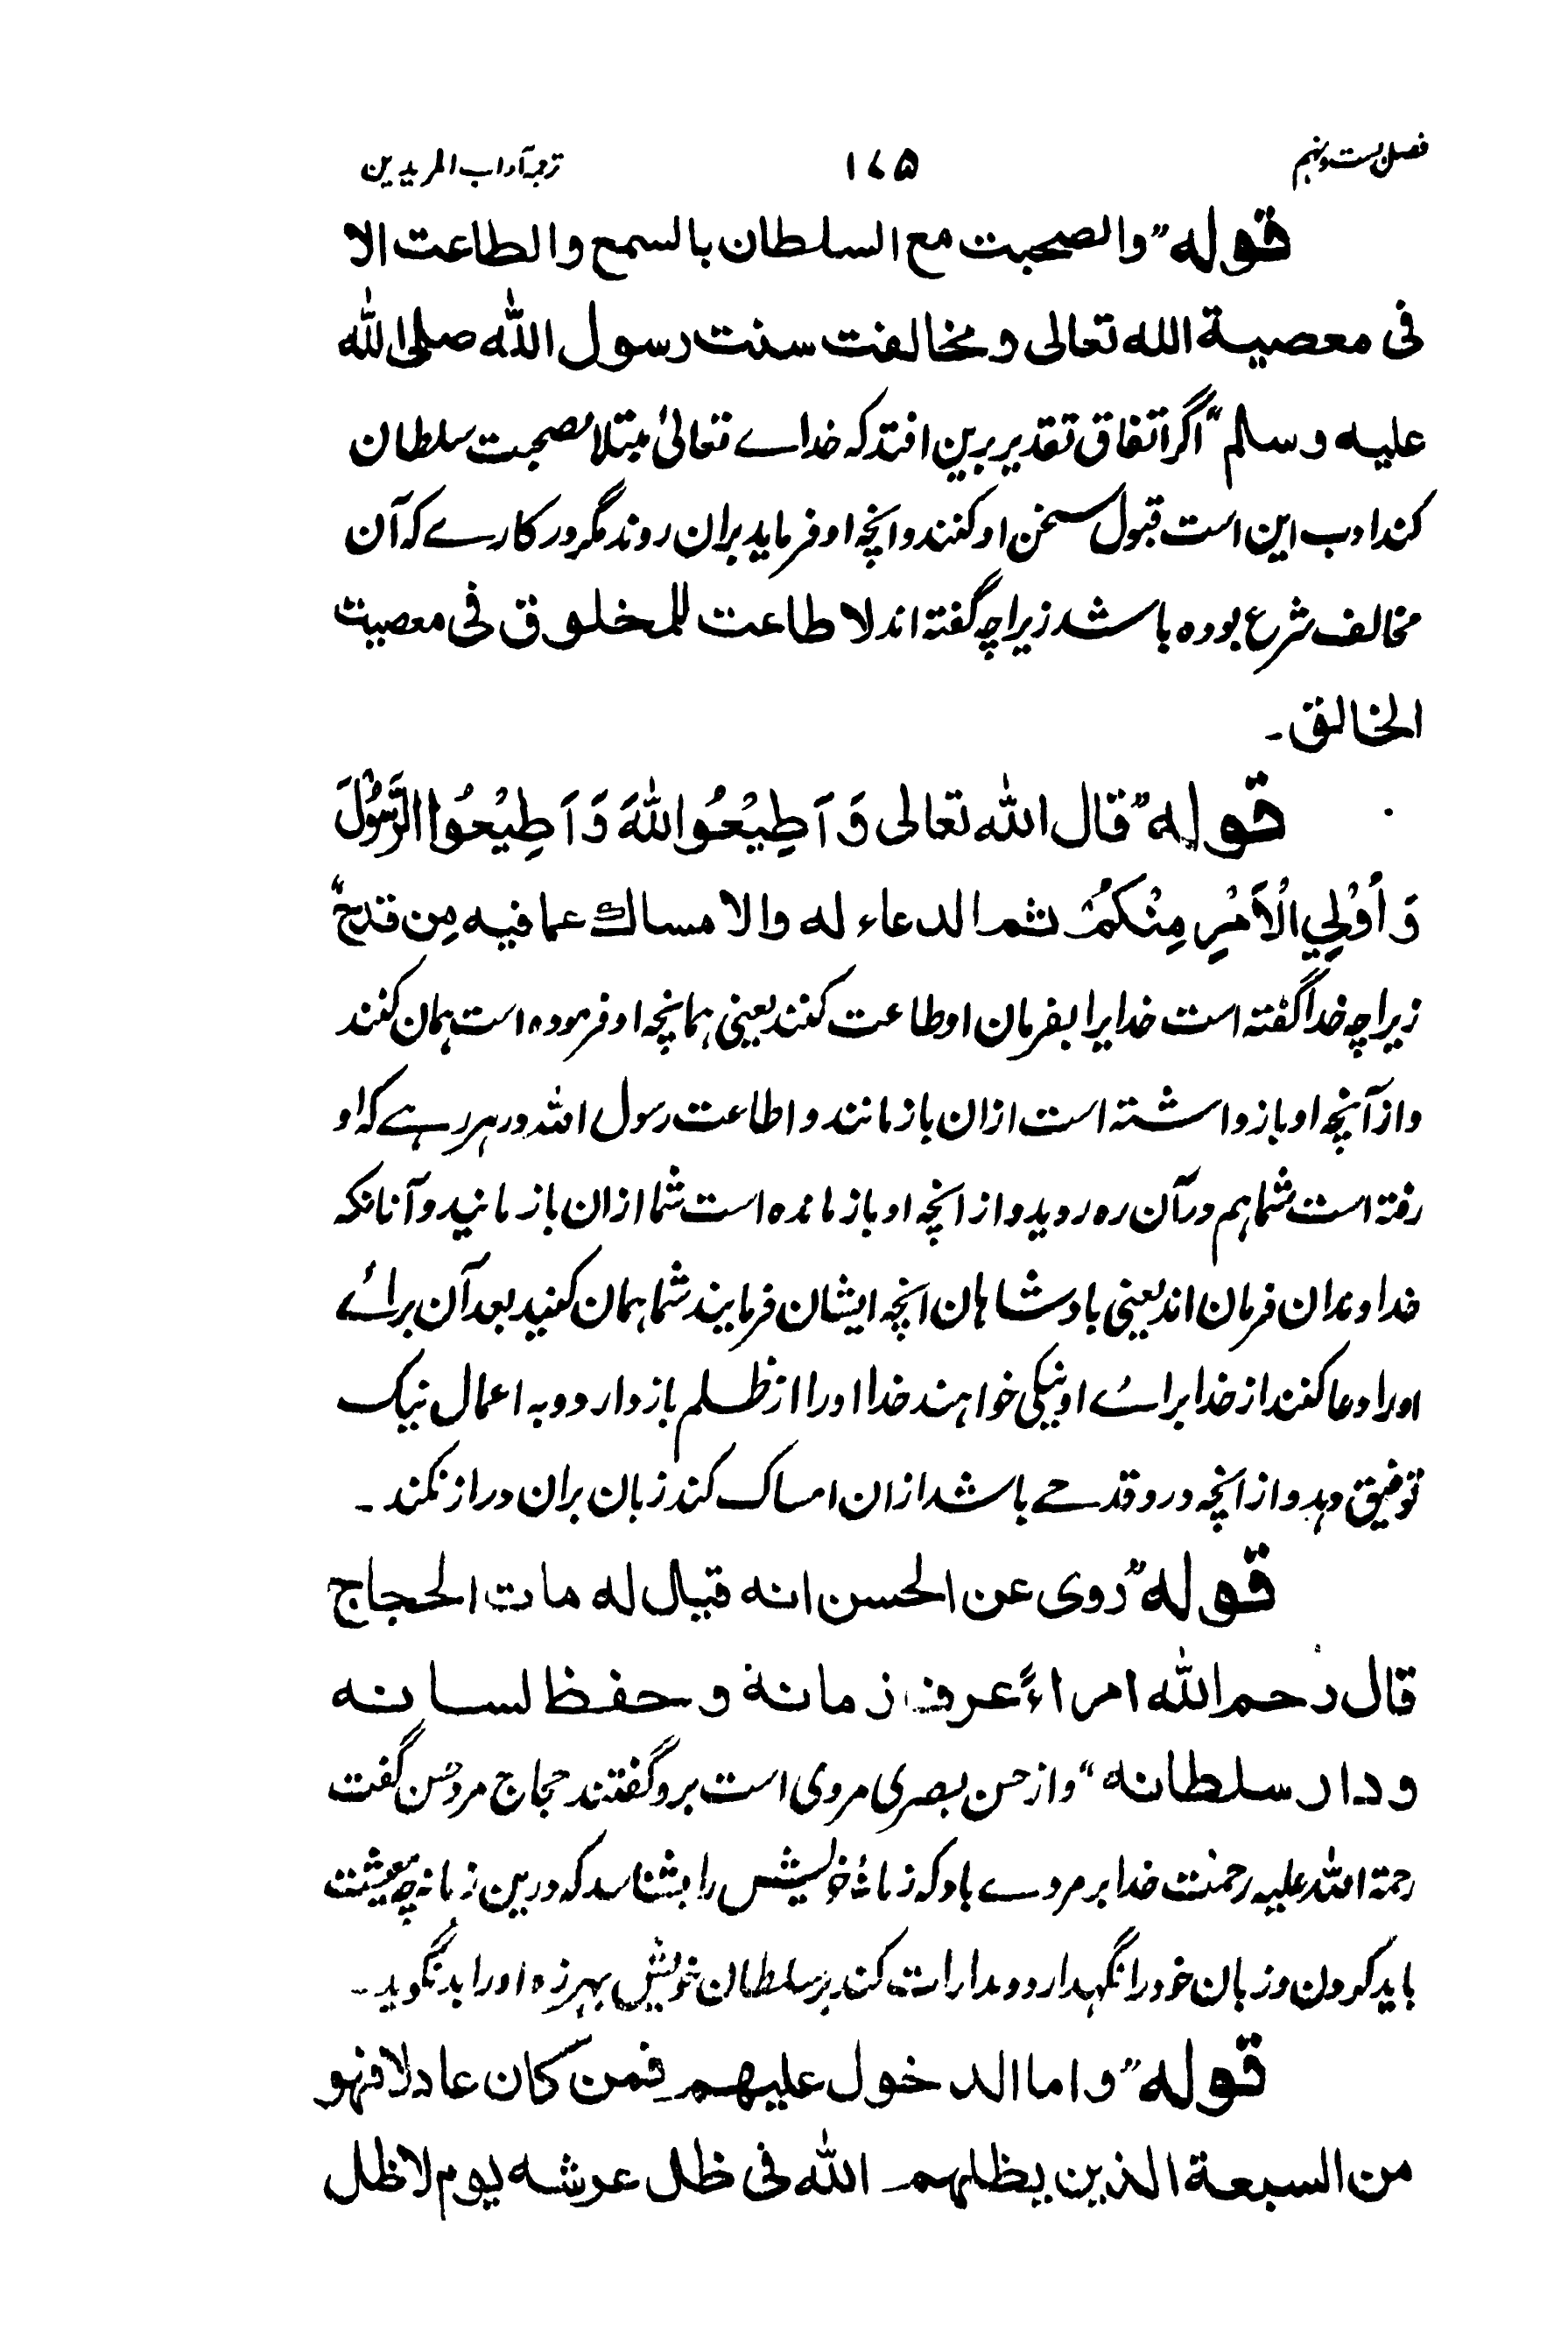 فصل بست و نهم ۱۷۵ ترجمہ آداب المریدین
قوله "والصحبت مع السلطان بالسمع والطاعت الا
فی معصیة الله تعالی و مخالفت سنت رسول الله صلی الله
علیه وسلم" اگر اتفاق تقدیر برین افتد که خداے تعالیٰ مبتلا بصحبت سلطان
کند ادب این است قبول سخن او کنند و انچه او فرماید بران روند مگر در کارے که آن
مخالف شرع بوده باشد زیراچه گفته اند لا طاعت للمخلوق فی معصیت
الخالق۔
قوله "قال الله تعالی وَ اَطِیْعُوا اللهَ وَ اَطِیْعُوا الرَّسُوْلَ
وَ اُوْلِي الْاَمْرِ مِنْكُمْ ثم الدعاء له والامساك عما فیه مِن قدح"
زیراچه خدا گفته است خدایرا بفرمان او طاعت کنند یعنی همانچه او فرموده است همان کنند
و از آنچه او باز داشته است ازان باز مانند و اطاعت رسول الله در هر رہے که او
رفته است شما هم در آن ره روید و از انچه او باز مانده است شما ازان باز مانید و آنانکه
خداوندان فرمان اند یعنی بادشاهان انچه ایشان فرمایند شما همان کنید بعد آن برائے
اورا دعا کنند از خدا برائے او نیکی خواهند خدا اورا از ظلم باز دارد و به اعمال نیک
توفیق دهد و از انچه درو قدحے باشد ازان امساک کند زبان بران دراز نکند۔
قوله "روی عن الحسن انه قیل له مات الحجاج
قال رحم الله امراءً عرف زمانة و حفظ لسانه
و دار سلطانه" و از حسن بصری مروی است برو گفتند حجاج مرد حسن گفت
رحمة الله علیه رحمت خدا بر مردے باد که زمانۂ خویش را بشناسد که درین زمانه چه معیشت
باید کردن و زبان خود را نگهدارد و مدارات کند بر سلطان خویش بهرزه اورا بد نگوید۔
قوله "و اما الدخول علیهم فمن کان عادلا فهو
من السبعة الذین یظلهم الله فی ظل عرشه یوم لا ظل